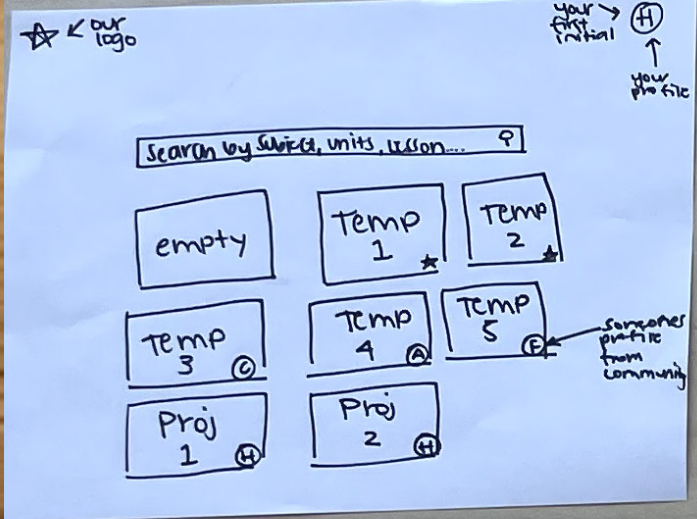 our
logo
your
first
initial
H
your
profile
Search by Subject, units, lesson....
empty
Temp
1
Temp
2
Temp
3
C
Temp
4
A
Temp
5
F
someones
profile
from
community
Proj
1
H
Proj
2
H